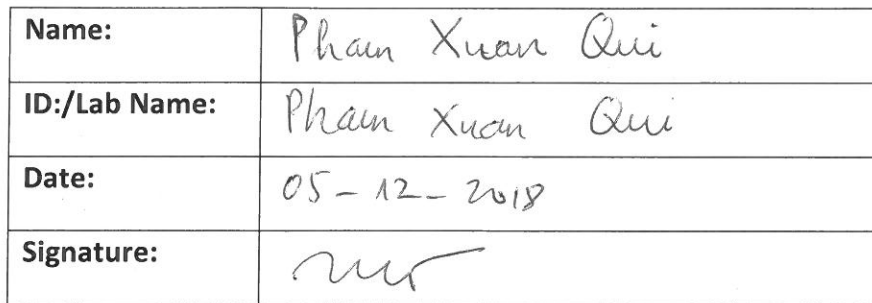 Name: Pham Xuan Qui
ID:/Lab Name: Pham Xuan Qui
Date: 05-12-2018
Signature: